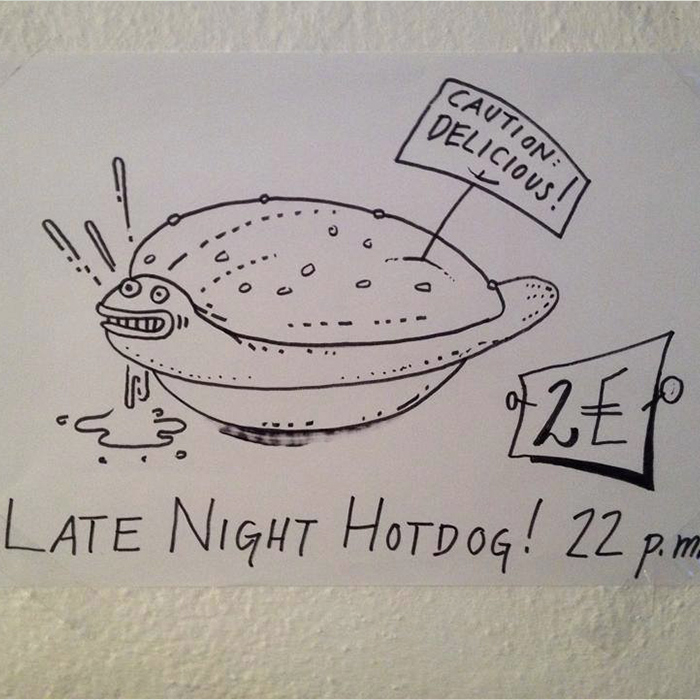 CAUTION:
DELICIOUS!
2€
LATE NIGHT HOTDOG! 22 p.m